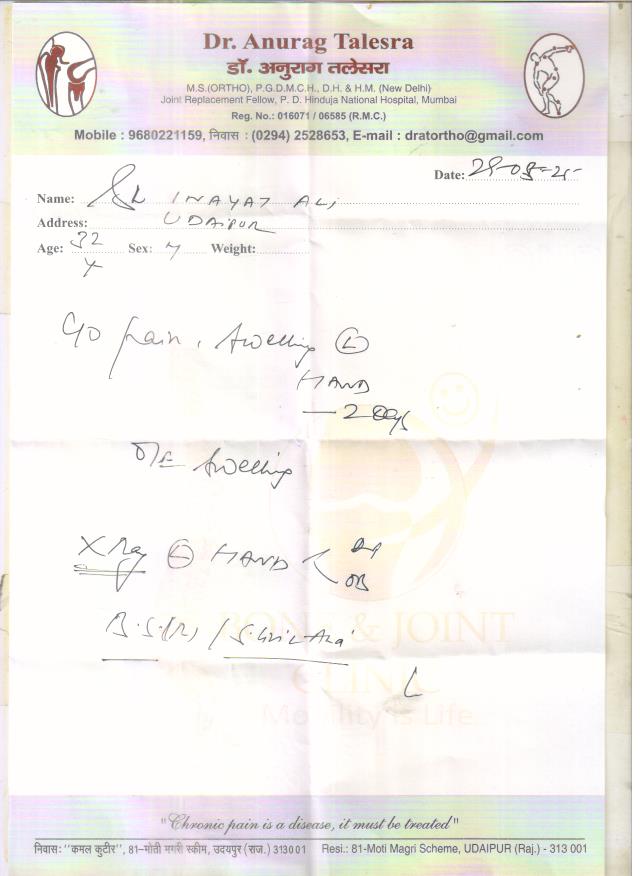 Dr. Anurag Talesra
डॉ. अनुराग तलेसरा
M.S.(ORTHO), P.G.D.M.C.H., D.H. & H.M. (New Delhi)
Joint Replacement Fellow, P. D. Hinduja National Hospital, Mumbai
Reg. No.: 016071 / 06585 (R.M.C.)
Mobile : 9680221159, निवास : (0294) 2528653, E-mail : dratortho@gmail.com
Date:
Name: INAYAT ALI
Address: UDAIPUR
Age: 32 Sex: M Weight:
Y
C/O pain, swelling (L)
HAND
— 2 days
O/E swelling
X Ray (L) HAND < AP
OB
B.S.(R) /
BONE & JOINT
CLINIC
Mobility is Life
"Chronic pain is a disease, it must be treated"
निवास: "कमल कुटीर", 81-मोती मगरी स्कीम, उदयपुर (राज.) 313001 Resi.: 81-Moti Magri Scheme, UDAIPUR (Raj.) - 313 001